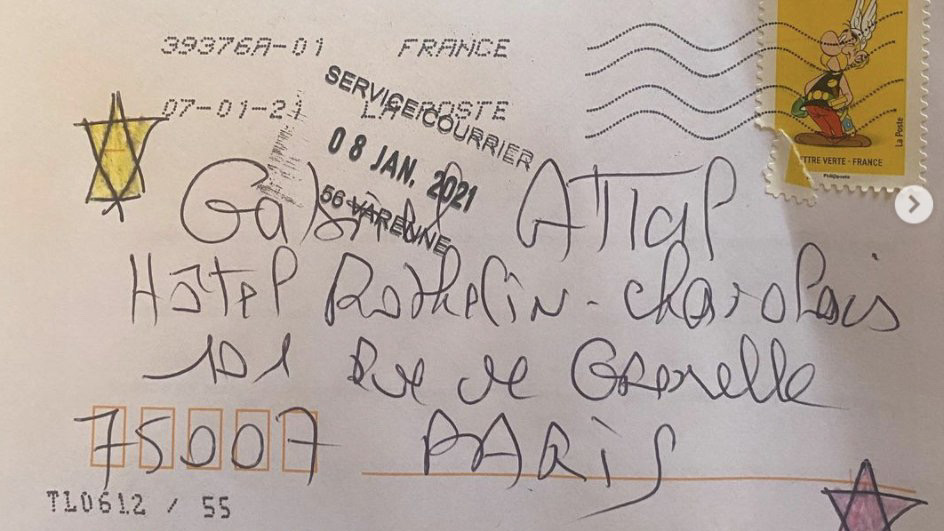 39376A-01 FRANCE
07-01-21 LA POSTE
SERVICE COURRIER
08 JAN. 2021
56 VARENNE
La Poste
LETTRE VERTE - FRANCE
Philaposte
Gabriel ATTal
Hôtel Rothelin-Charolais
101 Rue de Grenelle
75007 PARIS
TL0612 / 55